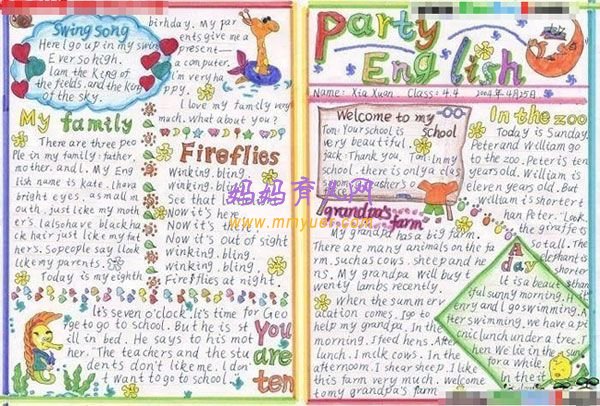 Swing Song
Here I go up in my swing
Ever so high.
I am the King of
the fields, and the King
of the sky.
My family
There are three peo
ple in my family: father,
mother, and I. My Eng
lish name is kate. I have
bright eyes, a small m
outh, just like my moth
er's. I also have black
hair just like my fat
her's. So people say I look
like my parents.
Today is my eighth
birthday. My par
ents give me a
present—
a computer.
I'm very ha
ppy.
I love my family very
much. What about you?
Fireflies
Winking, bling,
winking, bling,
See that
Now it's here
Now it's
Now it's out of sight
winking, bling,
winking, bling,
Fireflies at night.
It's seven o'clock. It's time for Geo
rge to go to school. But he is st
ill in bed. He says to his mot
her. "The teachers and the stu
dents don't like me. I don'
t want to go to school.
You
are
ten
Party
English
Name: Xia Xuan. Class: 4.4 2004年4月25日
Welcome to my
school
Tom: Your school is
very beautiful.
Jack: Thank you. Tom: In my
school, there is only a clas
room
office
grandpa's
farm
My grandpa has a big farm.
There are many animals on the fa
rm, such as cows, sheep and he
ns. My grandpa will buy t
wenty lambs recently.
when the summer v
acation comes, I go to
help my grandpa. In the
morning, I feed hens. After
lunch, I milk cows. In the
afternoon, I shear sheep. I like
this farm very much. Welcome
to my grandpa's farm.
In the zoo
Today is Sunday.
Peter and William go
to the zoo. Peter is ten
years old. William is
eleven years old. But
william is shorter t
han Peter. "Look,
the giraffe is
so tall. The
elephant is
shorter
A
day
It is a beau
tiful sunny morning. H
enry and I go swimming. A
fter swimming, we have a pi
cnic lunch under a tree. T
hen we lie in the sun
for a while.
In the
妈妈育儿网
www.mmyuer.com